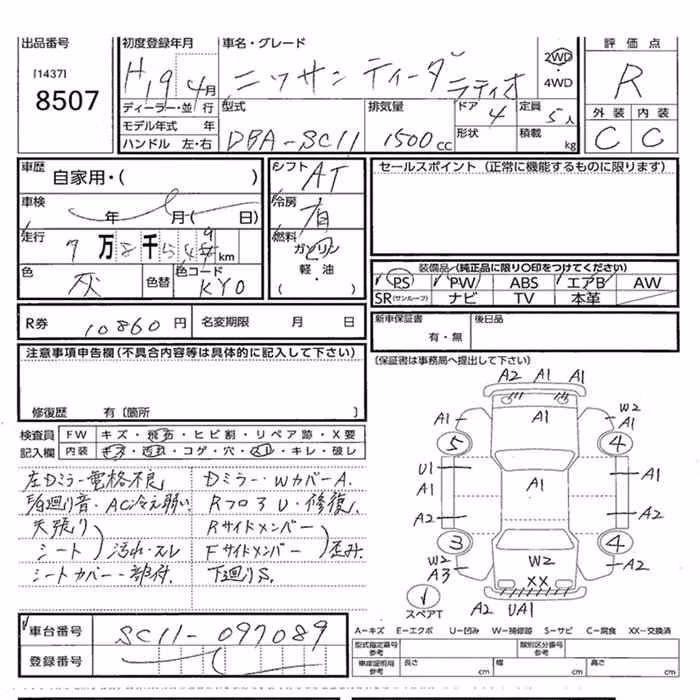 出品番号
[1437]
8507
初度登録年月
H19 4月
車名・グレード
ニッサン ティーダ ラティオ
2WD
・
4WD
評価点
R
外装 内装
C C
ディーラー・並行
モデル年式 年
ハンドル 左・右
型式
DBA-SC11
排気量
1500cc
ドア 4
形状
定員 5人
積載 kg
車歴
自家用・( )
車検
年 月( 日)
走行
7万8千54 km
色
灰
色替
色コード
KY0
シフト
AT
冷房
有
燃料
ガソリン
軽・油
( )
セールスポイント (正常に機能するものに限ります)
装備品 (純正品に限り〇印をつけてください)
PS PW ABS エアB AW
SR(サンルーフ) ナビ TV 本革
R券 10860円
名変期限 月 日
新車保証書
有・無
後日品
(保証書は事務局へ提出して下さい)
注意事項申告欄 (不具合内容等は具体的に記入して下さい)
修復歴 有〔箇所 〕
検査員
記入欄
FW キズ・飛石・ヒビ割・リペア跡・X要
内装 キズ・汚れ・コゲ・穴・スレ・キレ・破レ
左Dミラー電格不良
廻り音・AC冷え弱い
天張り
シート
汚れ・スレ
シートカバー一部付.
Dミラー・WカバーA.
Rフロア U・修復.
Rサイドメンバー
Fサイドメンバー
歪み.
下廻りS.
A2 A1 A1
A1 A1 W2
A1
5 4
U1 A1
A1
A2 A2
3 4
W2
A3
W2
XX
W2
A2
スペアT
A2 UA1
車台番号
SC11-097089
登録番号
A-キズ E-エクボ U-凹み W-補修跡 S-サビ C-腐食 XX-交換済
型式指定番号
参考
類別区分番号
参考
車庫証明用
参考
長さ cm
幅 cm
高さ cm